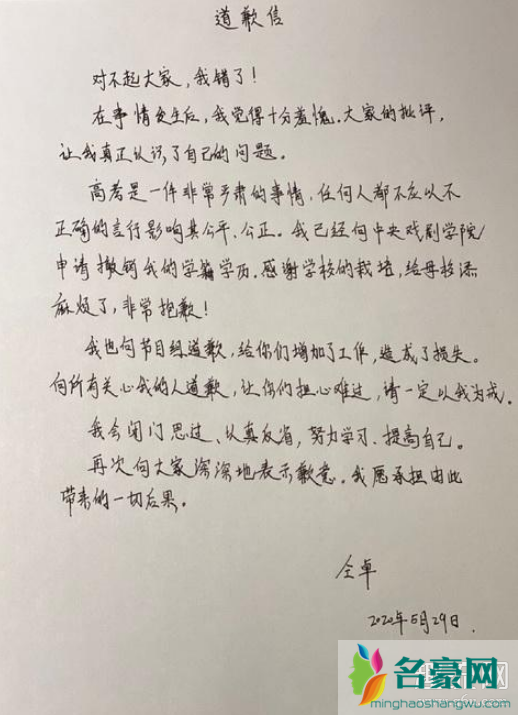 道歉信
对不起大家，我错了！
在事情发生后，我觉得十分羞愧。大家的批评，
让我真正认识了自己的问题。
高考是一件非常严肃的事情，任何人都不应以不
正确的言行影响其公平、公正。我已经向中央戏剧学院
申请撤销我的学籍学历。感谢学校的栽培，给母校添
麻烦了，非常抱歉！
我也向节目组道歉，给你们增加了工作，造成了损失。
向所有关心我的人道歉，让你们担心难过，请一定以我为戒。
我会闭门思过、认真反省，努力学习、提高自己。
再次向大家深深地表示歉意。我愿承担由此
带来的一切后果。
仝卓
2020年5月29日.
名豪网
minghaoshangwu.com